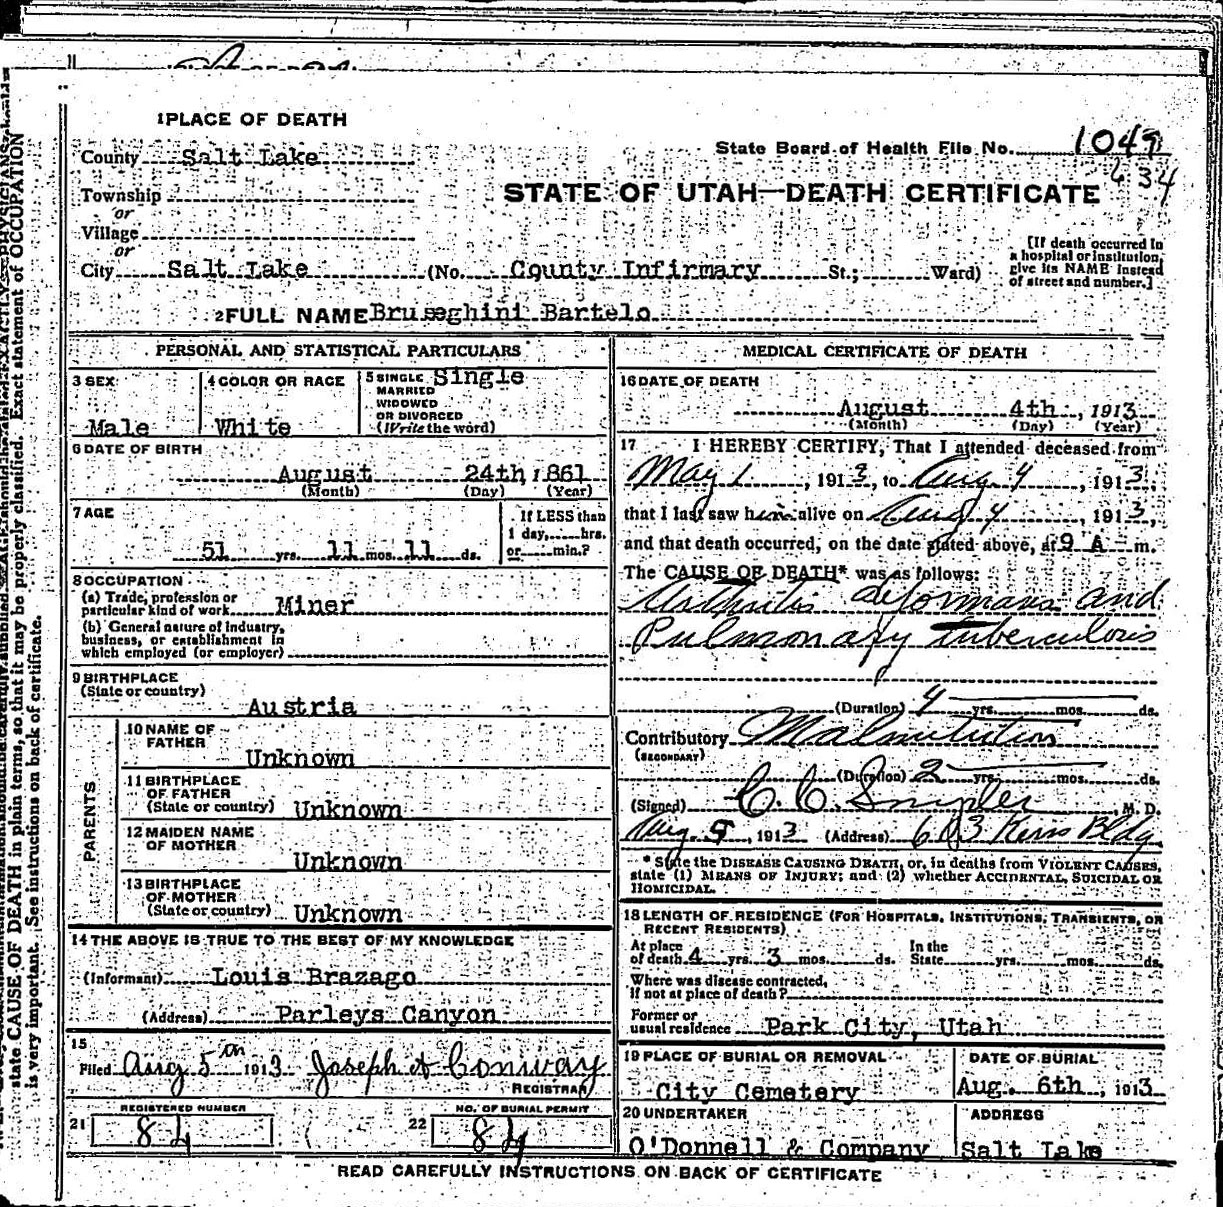 1 PLACE OF DEATH
County Salt Lake
State Board of Health File No. 1049
634
Township
or
Village
or
STATE OF UTAH—DEATH CERTIFICATE
City Salt Lake (No. County Infirmary St.; Ward)
[If death occurred in
a hospital or institution,
give its NAME instead
of street and number.]
2 FULL NAME Bruseghini Bartelo
PERSONAL AND STATISTICAL PARTICULARS
3 SEX
Male
4 COLOR OR RACE
White
5 SINGLE Single
MARRIED
WIDOWED
OR DIVORCED
(Write the word)
6 DATE OF BIRTH
August 24th, 1861
(Month) (Day) (Year)
7 AGE
51 yrs. 11 mos. 11 ds.
If LESS than
1 day, hrs.
or min.?
8 OCCUPATION
(a) Trade, profession or
particular kind of work Miner
(b) General nature of industry,
business, or establishment in
which employed (or employer)
9 BIRTHPLACE
(State or country)
Austria
PARENTS
10 NAME OF
FATHER
Unknown
11 BIRTHPLACE
OF FATHER
(State or country) Unknown
12 MAIDEN NAME
OF MOTHER
Unknown
13 BIRTHPLACE
OF MOTHER
(State or country) Unknown
14 THE ABOVE IS TRUE TO THE BEST OF MY KNOWLEDGE
(Informant) Louis Brazago
(Address) Parleys Canyon
15
Filed Aug 5th 1913 Joseph A Conway
REGISTRAR
REGISTERED NUMBER
21 84
NO. OF BURIAL PERMIT
22 84
MEDICAL CERTIFICATE OF DEATH
16 DATE OF DEATH
August 4th, 1913
(Month) (Day) (Year)
17 I HEREBY CERTIFY, That I attended deceased from
May 1, 1913, to Aug 4, 1913,
that I last saw him alive on Aug 4, 1913,
and that death occurred, on the date stated above, at 9 A m.
The CAUSE OF DEATH* was as follows:
Arthritis deformans and
Pulmonary tuberculosis
(Duration) 4 yrs. mos. ds.
Contributory Malnutrition
(SECONDARY)
(Duration) 2 yrs. mos. ds.
(Signed) C. C. Snyder, M. D.
Aug 5, 1913 (Address) 603 Kerns Bldg.
* State the DISEASE CAUSING DEATH, or, in deaths from VIOLENT CAUSES,
state (1) MEANS OF INJURY; and (2) whether ACCIDENTAL, SUICIDAL OR
HOMICIDAL.
18 LENGTH OF RESIDENCE (FOR HOSPITALS, INSTITUTIONS, TRANSIENTS, OR
RECENT RESIDENTS)
At place
of death 4 yrs. 3 mos. ds.
In the
State yrs. mos. ds.
Where was disease contracted,
if not at place of death?
Former or
usual residence Park City, Utah
19 PLACE OF BURIAL OR REMOVAL
City Cemetery
DATE OF BURIAL
Aug. 6th, 1913
20 UNDERTAKER
O'Donnell & Company
ADDRESS
Salt Lake
READ CAREFULLY INSTRUCTIONS ON BACK OF CERTIFICATE
state CAUSE OF DEATH in plain terms, so that it may be properly classified. Exact statement of OCCUPATION
is very important. See instructions on back of certificate.